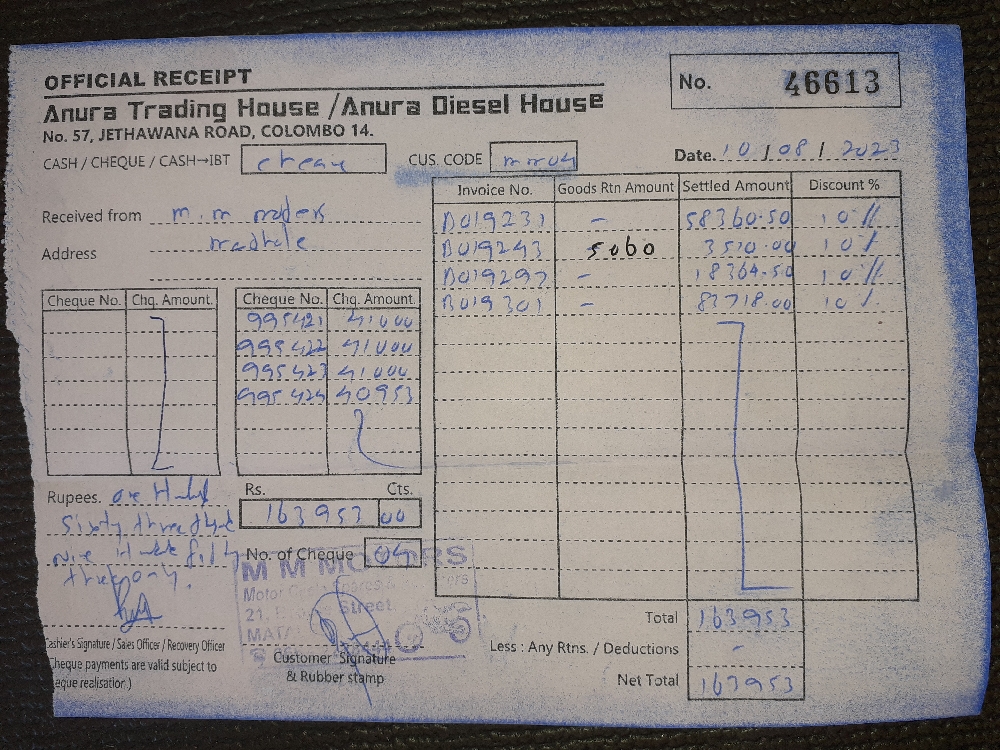 OFFICIAL RECEIPT
No. 46613
Anura Trading House /Anura Diesel House
No. 57, JETHAWANA ROAD, COLOMBO 14.
CASH / CHEQUE / CASH→IBT
CUS. CODE mm04
Date. 10 / 08 / 2023
Received from m.m
Address
Invoice No. Goods Rtn Amount Settled Amount Discount %
B019231 - 58360.50 10 %
B019243 5060 3510.00 10 %
B019297 - 18364.50 10 %
B019301 - 83718.00 10 %
Cheque No. Chq. Amount. Cheque No. Chq. Amount.
995421 41000
995422 41000
995423 41000
995424 40953
Rupees. one
Sixty three
Rs. Cts.
163953 00
No. of Cheque 04
three only.
M M MOTORS
Motor
21. Street
Cashier's Signature / Sales Officer / Recovery Officer
Cheque payments are valid subject to
eque realisation.)
Customer Signature
& Rubber stamp
Total 163953
Less : Any Rtns. / Deductions -
Net Total 163953